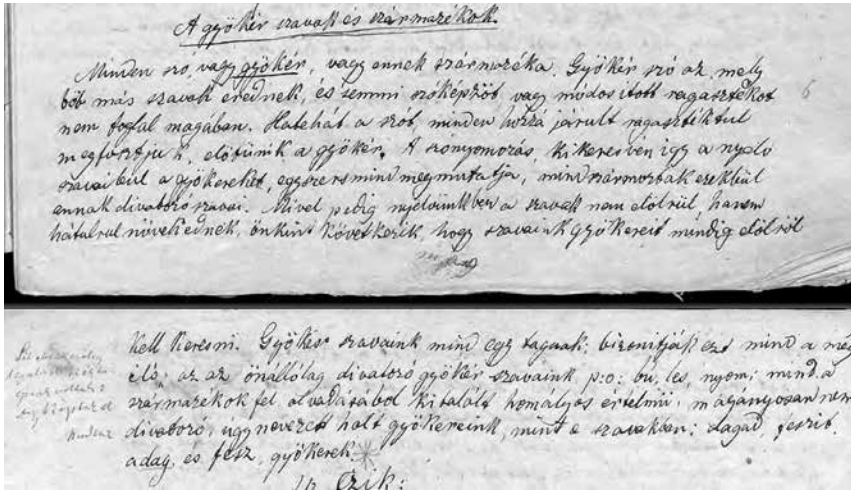 A gyökér szavak és származékok.
Minden szó, vagy gyökér, vagy ennek származéka. Gyökér szó az, mely
böl más szavak erednek, és semmi szóképzöt, vagy módositott ragasztékot
nem foglal magában. Hatehát a szót, minden hozzá járult ragasztéktul
megfosztjuk, elötünik a gyökér. A szónyomozás, kikeresvén igy a nyelv
szavaibul a gyökereket, egyszersmind megmutatja, mind származtak ezekböl
annak divatozó szavai. Mivel pedig nyelvünkben a szavak nem elölrül, hanem
hátulrul növekednek, önkint következik, hogy szavaink gyökereit mindig elölröl
kell keresni. Gyökér szavaink mind egy taguak; bizonitják ezt mind a még
élö, az az önállólag divatozó gyökér szavaink, p:o: bu, les, nyom; mind a
származékok fel olvadásából kitalált homályos értelmü, magányosan nem
divatozó, ugy nevezet holt gyökereink, mint e szavakban: dagad, feszit,
a dag, és fesz, gyökerek.
czik: